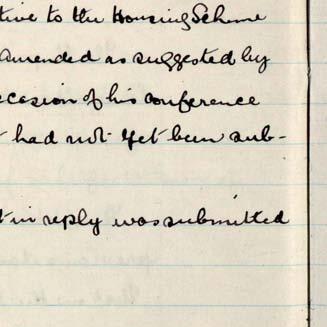 tive to the Housing Scheme
amended as suggested by
ccasion of his conference
had not yet been sub-
in reply was submitted